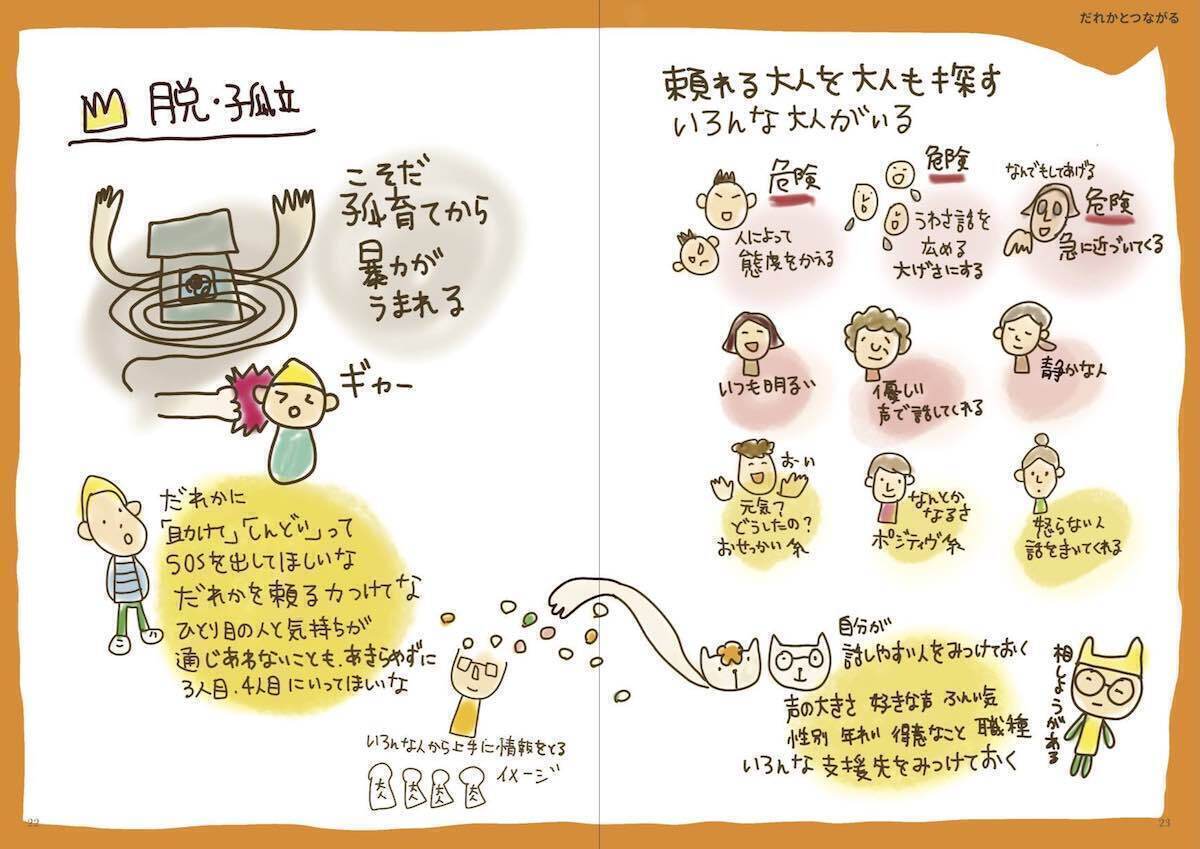 だれかとつながる
脱・孤立
こそだ
孤育てから
暴力が
うまれる
ギャー
だれかに
「助けて」「しんどい」って
SOSを出してほしいな
だれかを頼る力つけてな
ひとり目の人と気持ちが
通じあわないことも、あきらめずに
3人目、4人目にいってほしいな
いろんな人から上手に情報をとる
イメージ
大人
大人
大人
大人
22
頼れる大人を大人も探す
いろんな大人がいる
危険
人によって
態度をかえる
危険
うわさ話を
広める
大げさにする
なんでもしてあげる
危険
急に近づいてくる
いつも明るい
優しい
声で話してくれる
静かな人
おーい
元気?
どうしたの?
おせっかい系
なんとか
なるさ
ポジティヴ系
怒らない人
話をきいてくれる
自分が
話しやすい人をみつけておく
声の大きさ 好きな声 ふんい気
性別 年れい 得意なこと 職種
いろんな支援先をみつけておく
相しょうがある
23